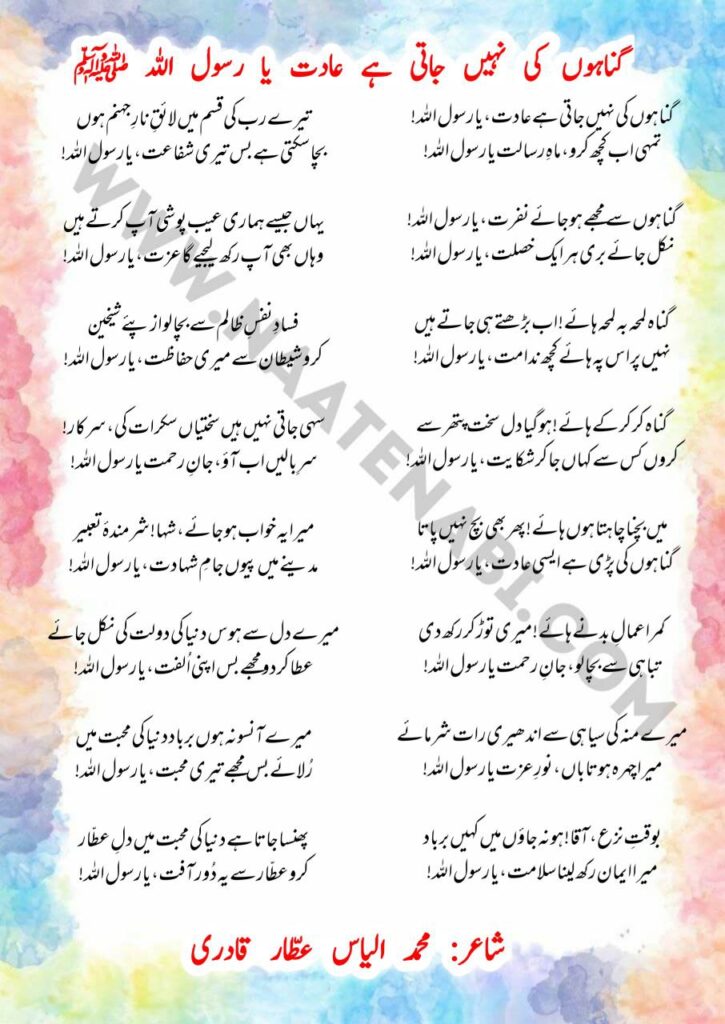 گناہوں کی نہیں جاتی ہے عادت یا رسول اللہ ﷺ
گناہوں کی نہیں جاتی ہے عادت، یارسول اللہ!
تمہی اب کچھ کرو، ماہِ رسالت یارسول اللہ!
گناہوں سے مجھے ہو جائے نفرت، یارسول اللہ!
نکل جائے بری ہر ایک خصلت، یارسول اللہ!
گناہ لمحہ بہ لمحہ ہائے! اب بڑھتے ہی جاتے ہیں
نہیں پر اس پہ ہائے کچھ ندامت، یارسول اللہ!
گناہ کر کر کے ہائے! ہو گیا دل سخت پتھر سے
کروں کس سے کہاں جا کر شکایت، یارسول اللہ!
میں بچنا چاہتا ہوں ہائے! پھر بھی بچ نہیں پاتا
گناہوں کی پڑی ہے ایسی عادت، یارسول اللہ!
کمر اعمالِ بد نے ہائے! میری توڑ کر رکھ دی
تباہی سے بچا لو، جانِ رحمت یارسول اللہ!
میرے منہ کی سیاہی سے اندھیری رات شرمائے
میرا چہرہ ہو تاباں، نورِ عزت یارسول اللہ!
بوقتِ نزع، آقا! ہو نہ جاؤں میں کہیں برباد
میرا ایمان رکھ لینا سلامت، یارسول اللہ!
تیرے رب کی قسم میں لائقِ نارِ جہنم ہوں
بچا سکتی ہے بس تیری شفاعت، یارسول اللہ!
یہاں جیسے ہماری عیب پوشی آپ کرتے ہیں
وہاں بھی آپ رکھ لیجیے گا عزت، یارسول اللہ!
فسادِ نفسِ ظالم سے بچا لو از پئے شیخین
کرو شیطان سے میری حفاظت، یارسول اللہ!
سہی جاتی نہیں ہیں سختیاں سکرات کی، سرکار!
سرِ بالیں اب آؤ، جانِ رحمت یارسول اللہ!
میرا یہ خواب ہو جائے، شہا! شرمندۂ تعبیر
مدینے میں پیوں جامِ شہادت، یارسول اللہ!
میرے دل سے ہوس دنیا کی دولت کی نکل جائے
عطا کر دو مجھے بس اپنی اُلفت، یارسول اللہ!
میرے آنسو نہ ہوں برباد دنیا کی محبت میں
رُلائے بس مجھے تیری محبت، یارسول اللہ!
پھنسا جاتا ہے دنیا کی محبت میں دلِ عطار
کرو عطّار سے یہ دُور آفت، یارسول اللہ!
شاعر: محمد الیاس عطّار قادری
WWW.NAATENABI.COM